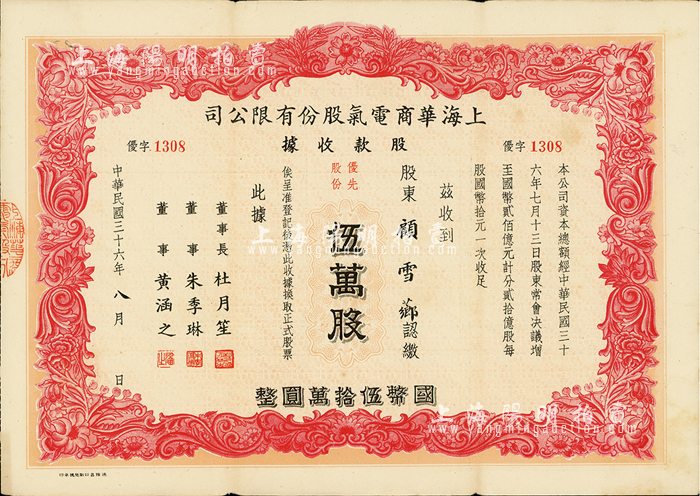 上海陽明拍賣
www.yangmingauction.com
上海華商電氣股份有限公司
股款收據
優字 1308
優字 1308
本公司資本總額經中華民國三十
六年七月十三日股東常會決議增
至國幣貳佰億元計分貳拾億股每
股國幣拾元一次收足
茲收到
股東 顧雪薌 認繳
優先
股份
伍萬股
俟呈准登記後憑此收據換取正式股票
此據
董事長 杜月笙
董事 朱季琳
董事 黃涵之
中華民國三十六年八月 日
國幣伍拾萬圓整
上海陽明拍賣
www.yangmingauction.com